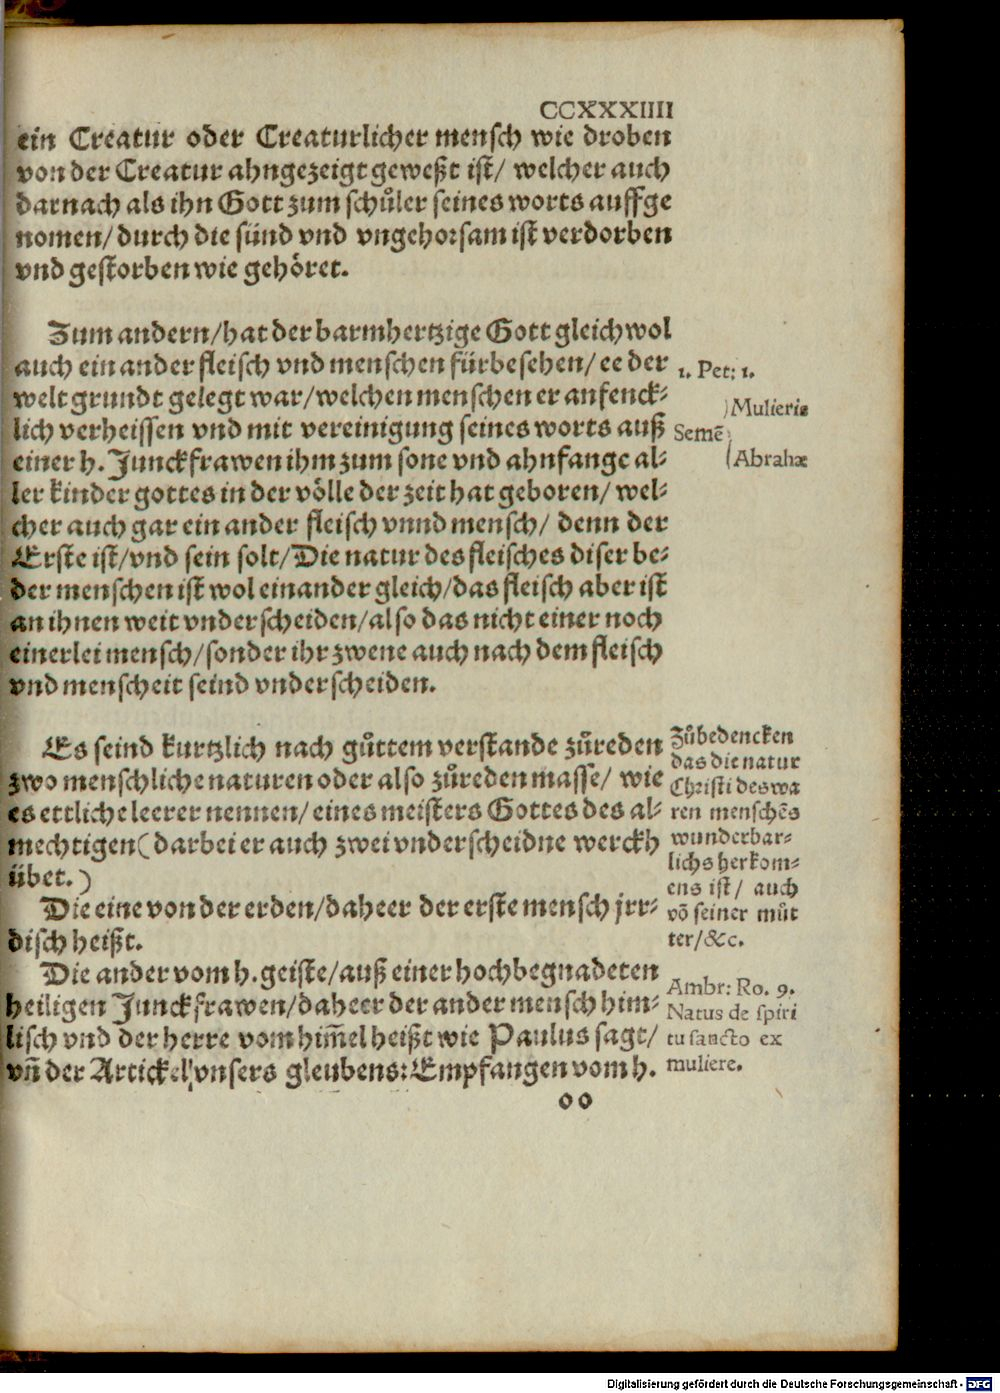 CCXXXIIII
ein Creatur oder Creaturlicher mensch wie droben
von der Creatur ahngezeigt geweßt ist/ welcher auch
darnach als ihn Gott zum schůler seines worts auffge
nomen/ durch die sünd vnd vngehorsam ist verdorben
vnd gestorben wie gehöret.
Zum andern/ hat der barmhertzige Gott gleichwol
auch ein ander fleisch vnd menschen fürbesehen/ ee der
welt grundt gelegt war/ welchen menschen er anfenck⸗
lich verheissen vnd mit vereinigung seines worts auß
einer h. Junckfrawen ihm zum sone vnd ahnfange al⸗
ler kinder gottes in der völle der zeit hat geboren/ wel⸗
cher auch gar ein ander fleisch vnnd mensch/ denn der
Erste ist/ vnd sein solt/ Die natur des fleisches diser be⸗
der menschen ist wol einander gleich/ das fleisch aber ist
an ihnen weit vnderscheiden/ also das nicht einer noch
einerlei mensch/ sonder ihr zwene auch nach dem fleisch
vnd menscheit seind vnderscheiden.
1. Pet: 1.
Mulieris
Semē
Abrahæ
Es seind kurtzlich nach gůttem verstande zůreden
zwo menschliche naturen oder also zůreden masse/ wie
es ettliche leerer nennen/ eines meisters Gottes des al⸗
mechtigen (darbei er auch zwei vnderscheidne werckh
übet.)
Die eine von der erden/ daheer der erste mensch jrr⸗
disch heißt.
Die ander vom h. geiste/ auß einer hochbegnadeten
heiligen Junckfrawen/ daheer der ander mensch him⸗
lisch vnd der herre vom him̃el heißt wie Paulus sagt/
vñ der Artickel vnsers gleubens: Empfangen vom h.
Zůbedencken
das die natur
Christi des wa
ren menschēs
wunderbar⸗
lichs herkom⸗
ens ist/ auch
vō seiner můt
ter/ &c.
Ambr: Ro. 9.
Natus de spiri
tu sancto ex
muliere.
oo
Digitalisierung gefördert durch die Deutsche Forschungsgemeinschaft - DFG